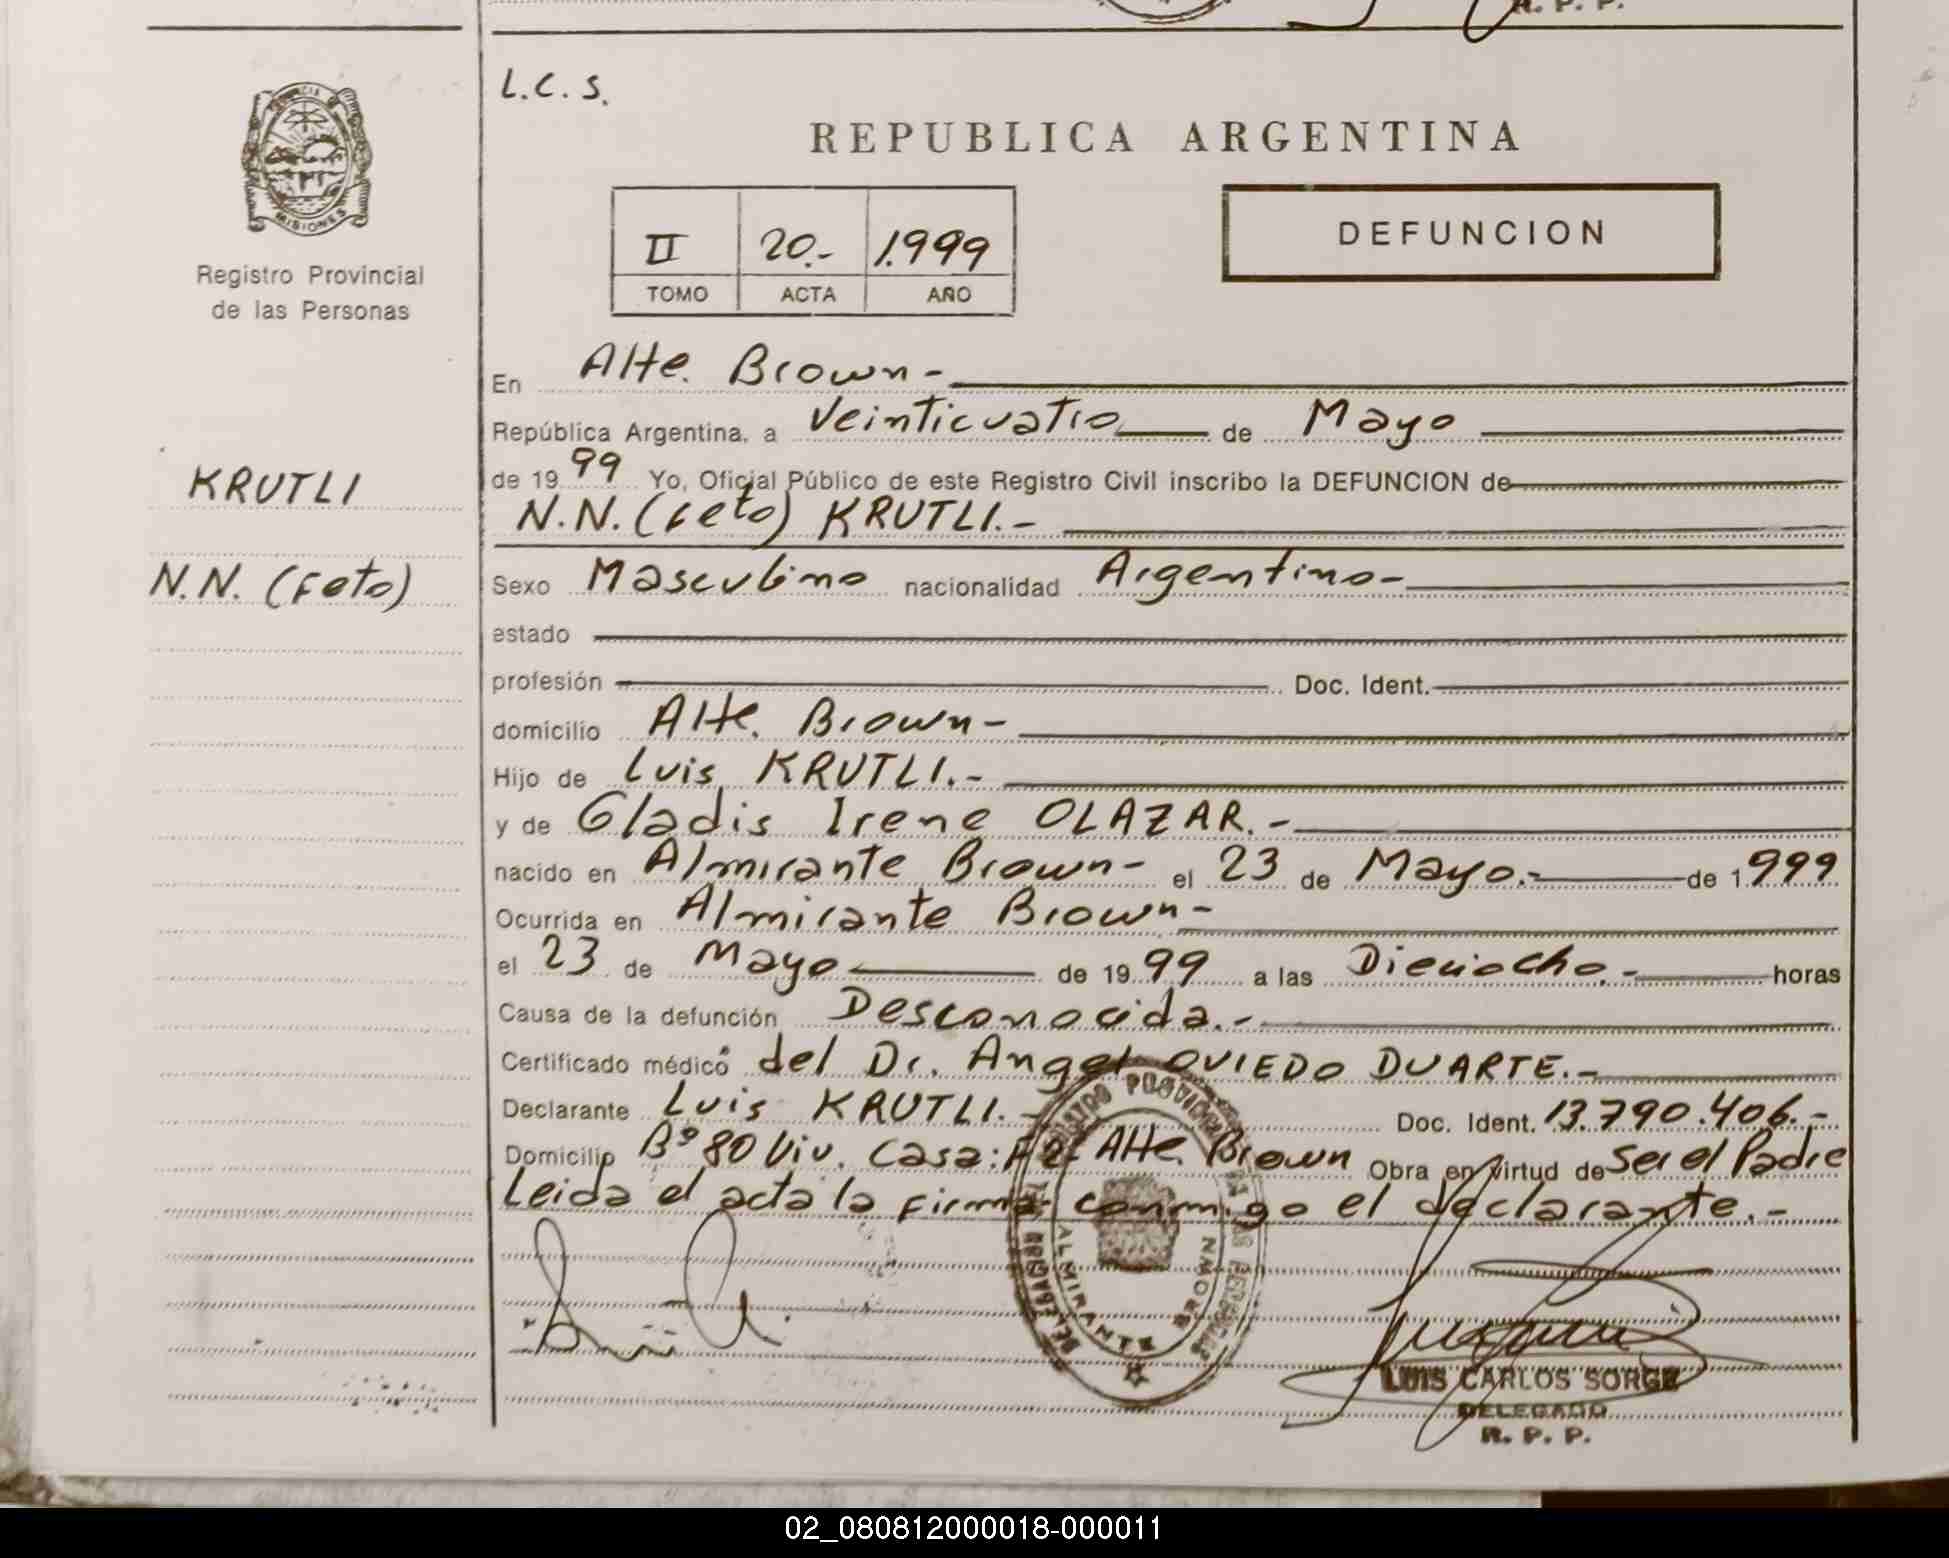 R. P. P.
L.C.S.
PROVINCIA DE
MISIONES
Registro Provincial
de las Personas
REPUBLICA ARGENTINA
II 20.- 1.999
TOMO ACTA AÑO
DEFUNCION
En Alte. Brown-
República Argentina, a Veinticuatro de Mayo
de 1999 Yo, Oficial Público de este Registro Civil inscribo la DEFUNCION de
KRUTLI
N.N. (feto) KRUTLI.-
N.N. (feto)
Sexo Masculino nacionalidad Argentino-
estado
profesión Doc. Ident.
domicilio Alte. Brown-
Hijo de Luis KRUTLI.-
y de Gladis Irene OLAZAR.-
nacido en Almirante Brown- el 23 de Mayo.- de 1999
Ocurrida en Almirante Brown-
el 23 de Mayo de 1999 a las Dieciocho.- horas
Causa de la defunción Desconocida.-
Certificado médico del Dr. Angel OVIEDO DUARTE.-
Declarante Luis KRUTLI.- Doc. Ident. 13.790.406.-
Domicilio Bº 80 Viv. Casa: Alte. Brown Obra en virtud de Ser el Padre
Leida el acta la firma conmigo el declarante.-
ALMIRANTE BROWN
LUIS CARLOS SORGE
DELEGADO
R. P. P.
02_080812000018-000011